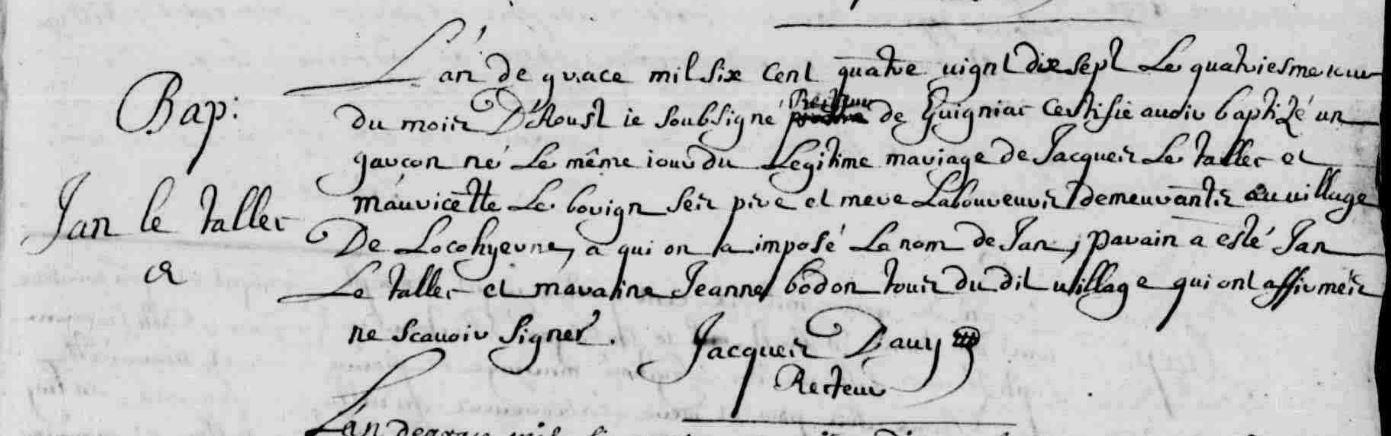 Bap:
Jan le tallec
L'an de grace mil six cent quatre vignt dix sept Le quatriesme iour
du moiis D'Aoust ie soubsigné Recteur de Guigniac certifie avoir baptizé un
garcon né Le même iour du Legitime mariage de Jacques Le tallec et
mauricette Le borign ses pere et mere Laboureurs demeurants au village
De Locohyerne, a qui on a imposé Le nom de Jan, parain a esté Jan
Le tallec et maraine Jeanne bodon touis du dit village qui ont affirmés
ne scavoir signer.
Jacques Dauy
Recteur
L'an de grace mil